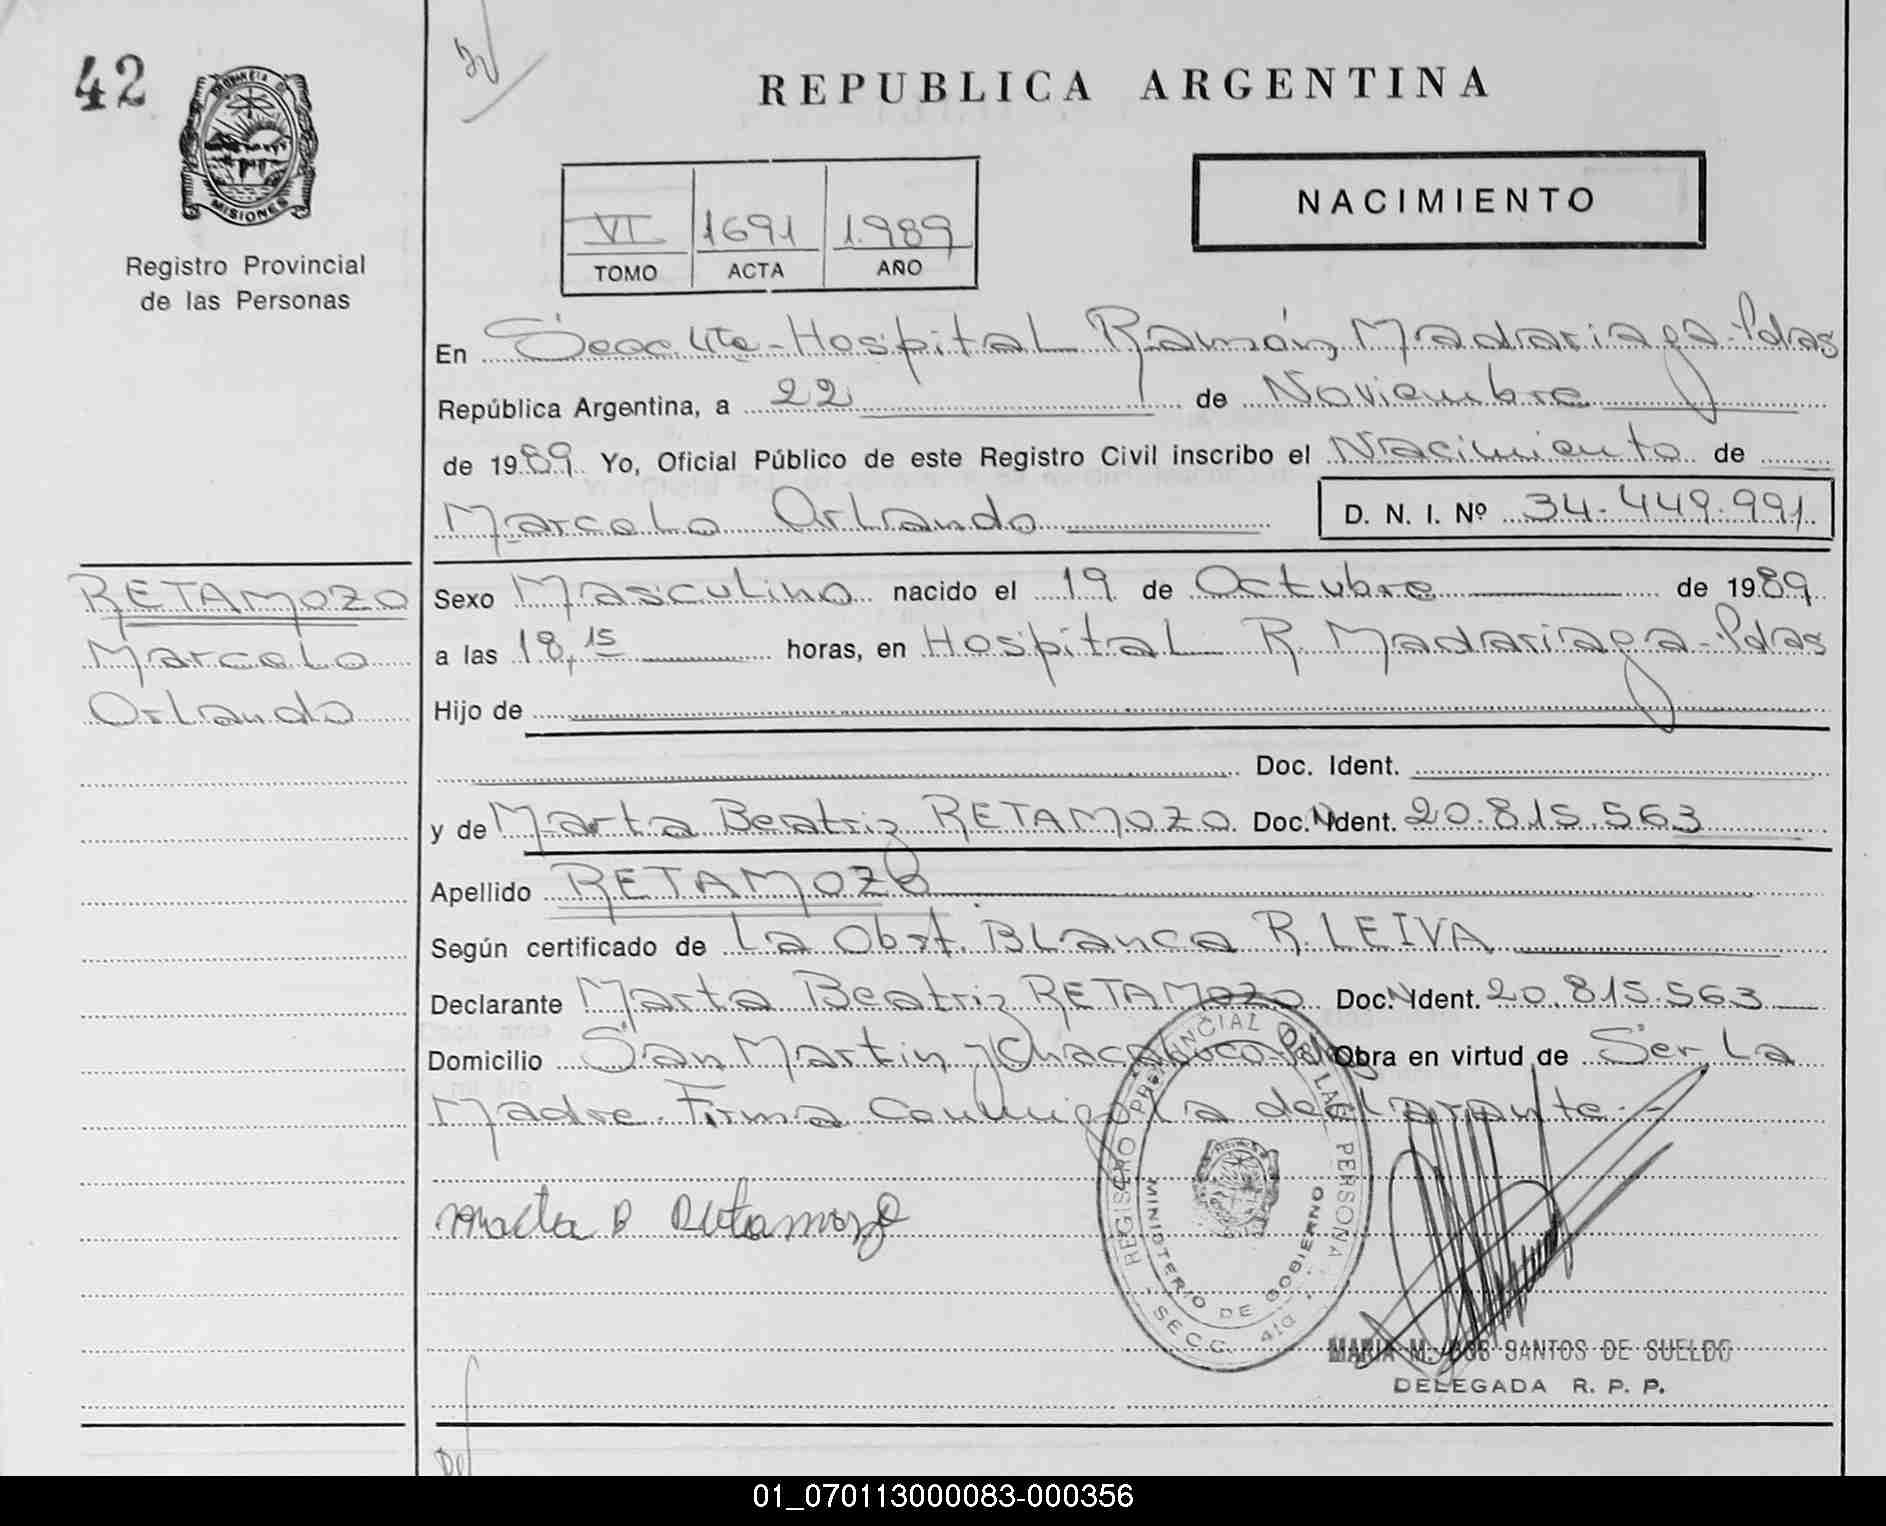 42
PROVINCIA DE
MISIONES
Registro Provincial
de las Personas
REPUBLICA ARGENTINA
NACIMIENTO
VI 1691 1.989
TOMO ACTA AÑO
En Secc 4ta - Hospital Ramón Madariaga - Pdas
República Argentina, a 22 de Noviembre
de 1989. Yo, Oficial Público de este Registro Civil inscribo el Nacimiento de
Marcelo Orlando D. N. I. Nº 34.449.991
RETAMOZO
Marcelo
Orlando
Sexo Masculino nacido el 19 de Octubre de 1989
a las 18,15 horas, en Hospital R. Madariaga - Pdas
Hijo de
Doc. Ident.
y de Marta Beatriz RETAMOZO Doc. Ident. 20.815.563
Apellido RETAMOZO
Según certificado de La Obst. Blanca R. LEIVA
Declarante Marta Beatriz RETAMOZO Doc. Ident. 20.815.563
Domicilio San Martin y Chacabuco Pdas Obra en virtud de Ser La
Madre. Firma Conmigo La declarante.-
Marta B Retamozo
REGISTRO PROVINCIAL DE LAS PERSONAS
MINISTERIO DE GOBIERNO
SECC. 4ta
MARIA M. DOS SANTOS DE SUELDO
DELEGADA R. P. P.
01_070113000083-000356